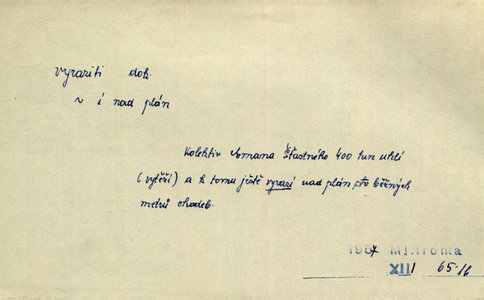 vyraziti dok.
~ i nad plán
Kolektiv Romana Šťastného 400 tun uhlí
(vytěží) a k tomu ještě vyrazí nad plán sto běžných
metrů chodeb.
1954 Ml. fronta
XIII 65-16